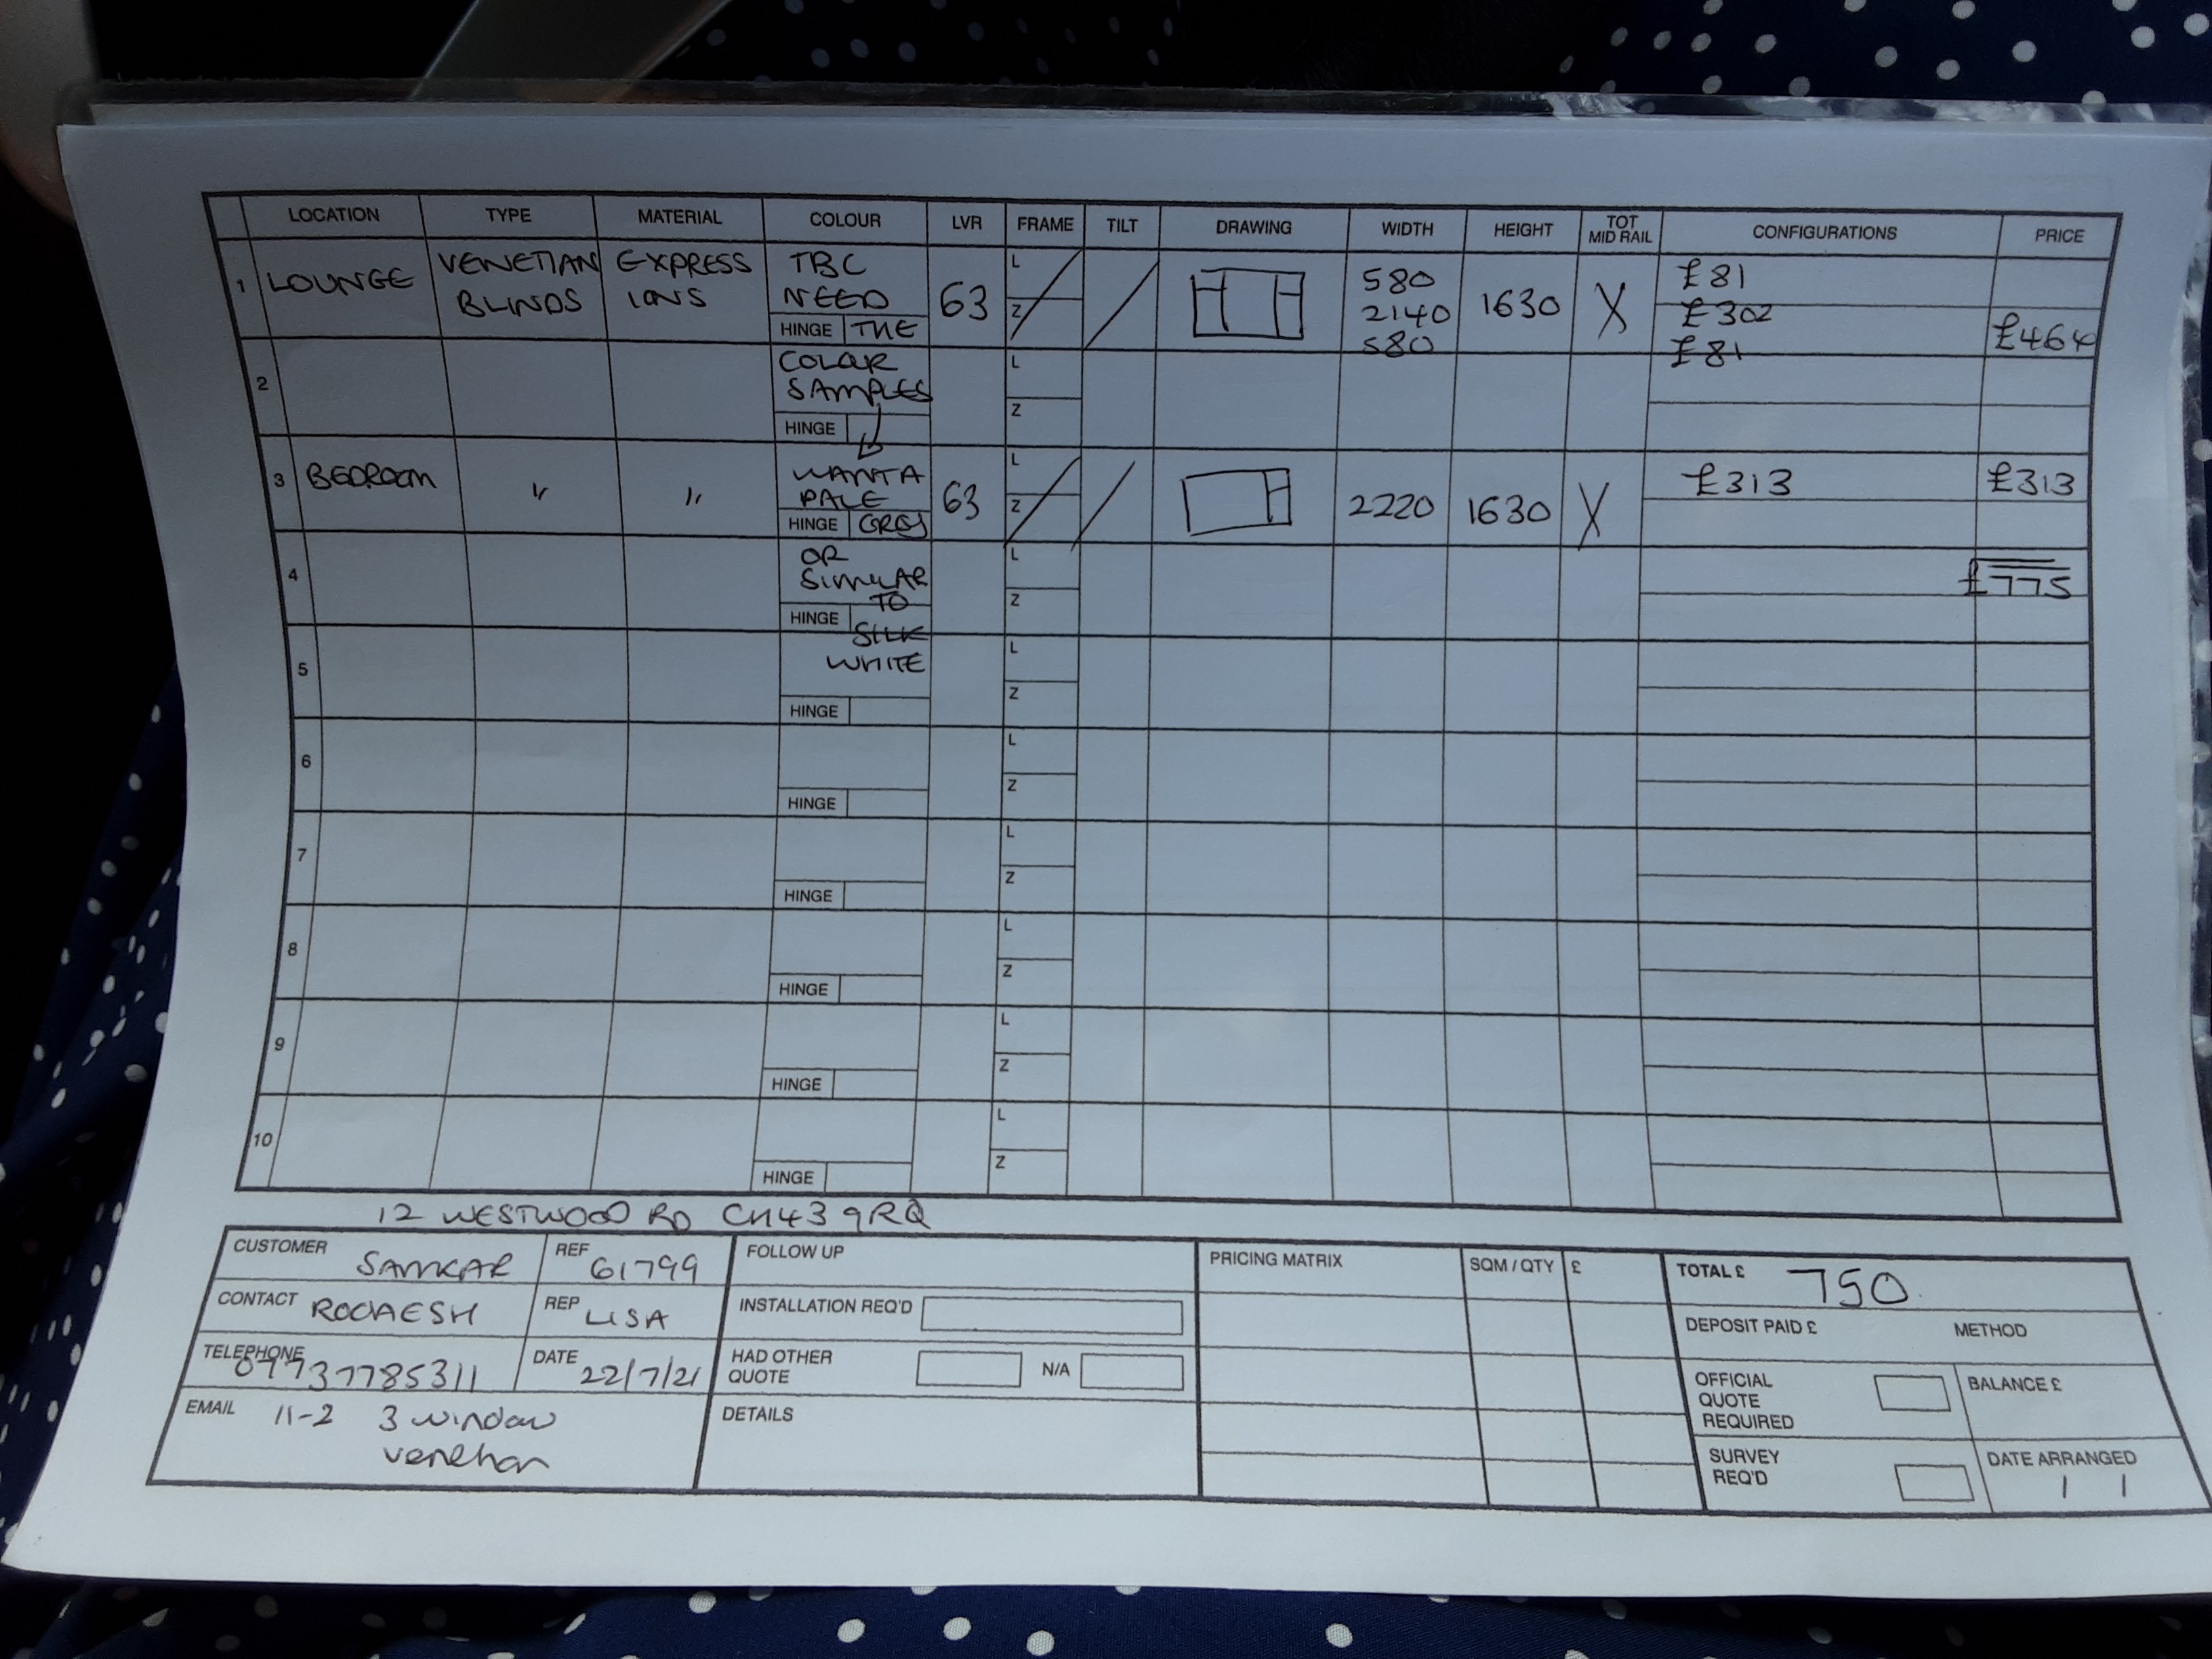 LOCATION TYPE MATERIAL COLOUR LVR FRAME TILT DRAWING WIDTH HEIGHT TOT MID RAIL CONFIGURATIONS PRICE
1 LOUNGE VENETIAN BLINDS EXPRESS IONS TBC NEED 63 L Z 580 2140 580 1630 X £81 £302 £81 £464
HINGE THE
2 COLOUR SAMPLES L Z
HINGE
3 BEDROOM " " WANT A PALE 63 L Z 2220 1630 X £313 £313
HINGE GREY
4 OR SIMILAR TO L Z £775
HINGE SILK
5 WHITE L Z
HINGE
6 L Z
HINGE
7 L Z
HINGE
8 L Z
HINGE
9 L Z
HINGE
10 L Z
HINGE
12 WESTWOOD RD CH43 9RQ
CUSTOMER SAMKAR REF 61799 FOLLOW UP PRICING MATRIX SQM / QTY £ TOTAL £ 750
CONTACT REP LISA INSTALLATION REQ'D DEPOSIT PAID £ METHOD
TELEPHONE 07737785311 DATE 22/7/21 HAD OTHER QUOTE N/A OFFICIAL QUOTE REQUIRED BALANCE £
EMAIL 11-2 3 window DETAILS SURVEY REQ'D DATE ARRANGED
venetian / /